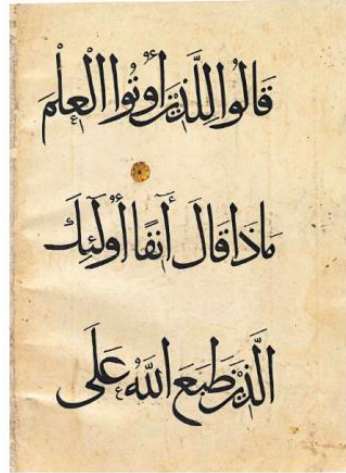 قَالُوا لِلَّذِينَ أُوتُوا الْعِلْمَ
مَاذَا قَالَ آنِفًا أُولَئِكَ
الَّذِينَ طَبَعَ اللَّهُ عَلَى